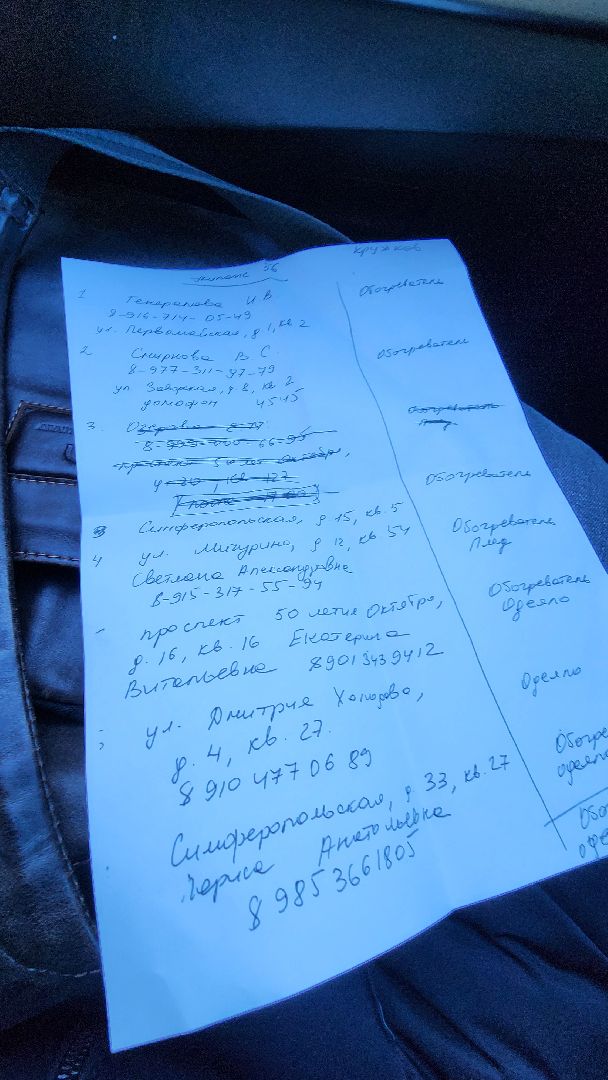 56
Кружков
1 Генералова И В Обогреватель
8-916-714-05-49
ул. Первомайская, д 1, кв 2
2 Смирнова В. С. Обогреватель
8-977-311-37-79
ул Заводская, д 8, кв 2
домофон 4545
3.
3 Симферопольская, д 15, кв. 5 Обогреватель
4 ул. Мичурино, д 12, кв 54 Обогреватель
Светлана Александровна Плед
8-915-317-55-94
- проспект 50 летие Октября, Обогреватель
д. 16, кв. 16 Екатерина Одеяло
Витальевна 89013439412
ул. Дмитрия Холодова, Одеяло
д. 4, кв. 27.
8 910 477 06 89
Симферопольская, д 33, кв. 27 Обогре
Лариса Анатольевна одеяло
8 985 3661805 Обо
одея